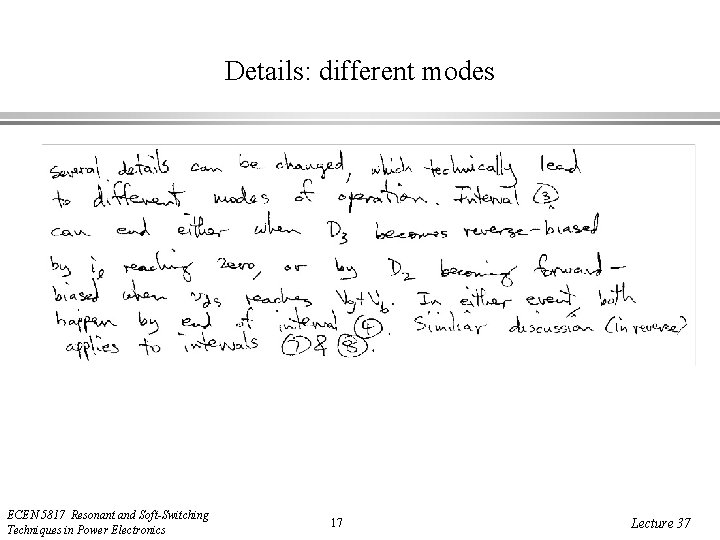 Details: different modes
Several details can be changed, which technically lead
to different modes of operation. Interval ③
can end either when D₃ becomes reverse-biased
by iₑ reaching zero, or by D₂ becoming forward-
biased when v₂ₛ reaches Vg+Vb. In either event, both
happen by end of interval ④. Similar discussion (in reverse)
applies to intervals ⑦ & ⑧.
ECEN 5817 Resonant and Soft-Switching
Techniques in Power Electronics
17
Lecture 37